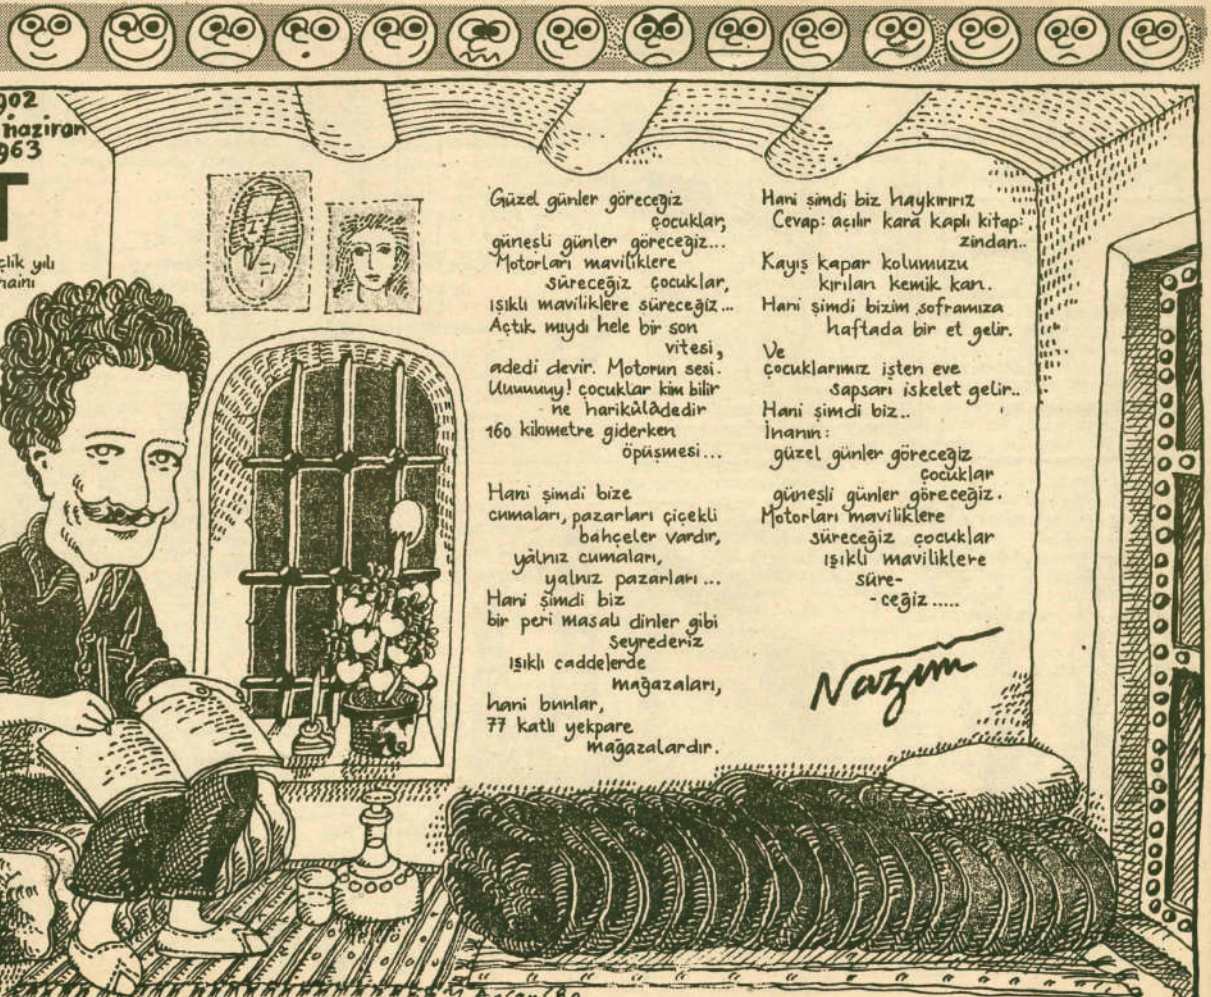 902
haziran
963
T
çlik yılı
haini
Güzel günler göreceğiz
çocuklar,
güneşli günler göreceğiz...
Motorları maviliklere
süreceğiz çocuklar,
ışıklı maviliklere süreceğiz...
Açtık mıydı hele bir son
vitesi,
adedi devir. Motorun sesi.
Uuuuuuy! çocuklar kim bilir
ne harikûlâdedir
160 kilometre giderken
öpüşmesi...
Hani şimdi bize
cumaları, pazarları çiçekli
bahçeler vardır,
yalnız cumaları,
yalnız pazarları...
Hani şimdi biz
bir peri masalı dinler gibi
seyrederiz
ışıklı caddelerde
mağazaları,
hani bunlar,
77 katlı yekpare
mağazalardır.
Hani şimdi biz haykırırız
Cevap: açılır kara kaplı kitap:
zindan..
Kayış kapar kolumuzu
kırılan kemik kan.
Hani şimdi bizim soframıza
haftada bir et gelir.
Ve
çocuklarımız işten eve
sapsarı iskelet gelir..
Hani şimdi biz..
İnanın:
güzel günler göreceğiz
çocuklar
güneşli günler göreceğiz.
Motorları maviliklere
süreceğiz çocuklar
ışıklı maviliklere
süre-
-ceğiz.....
Nazım